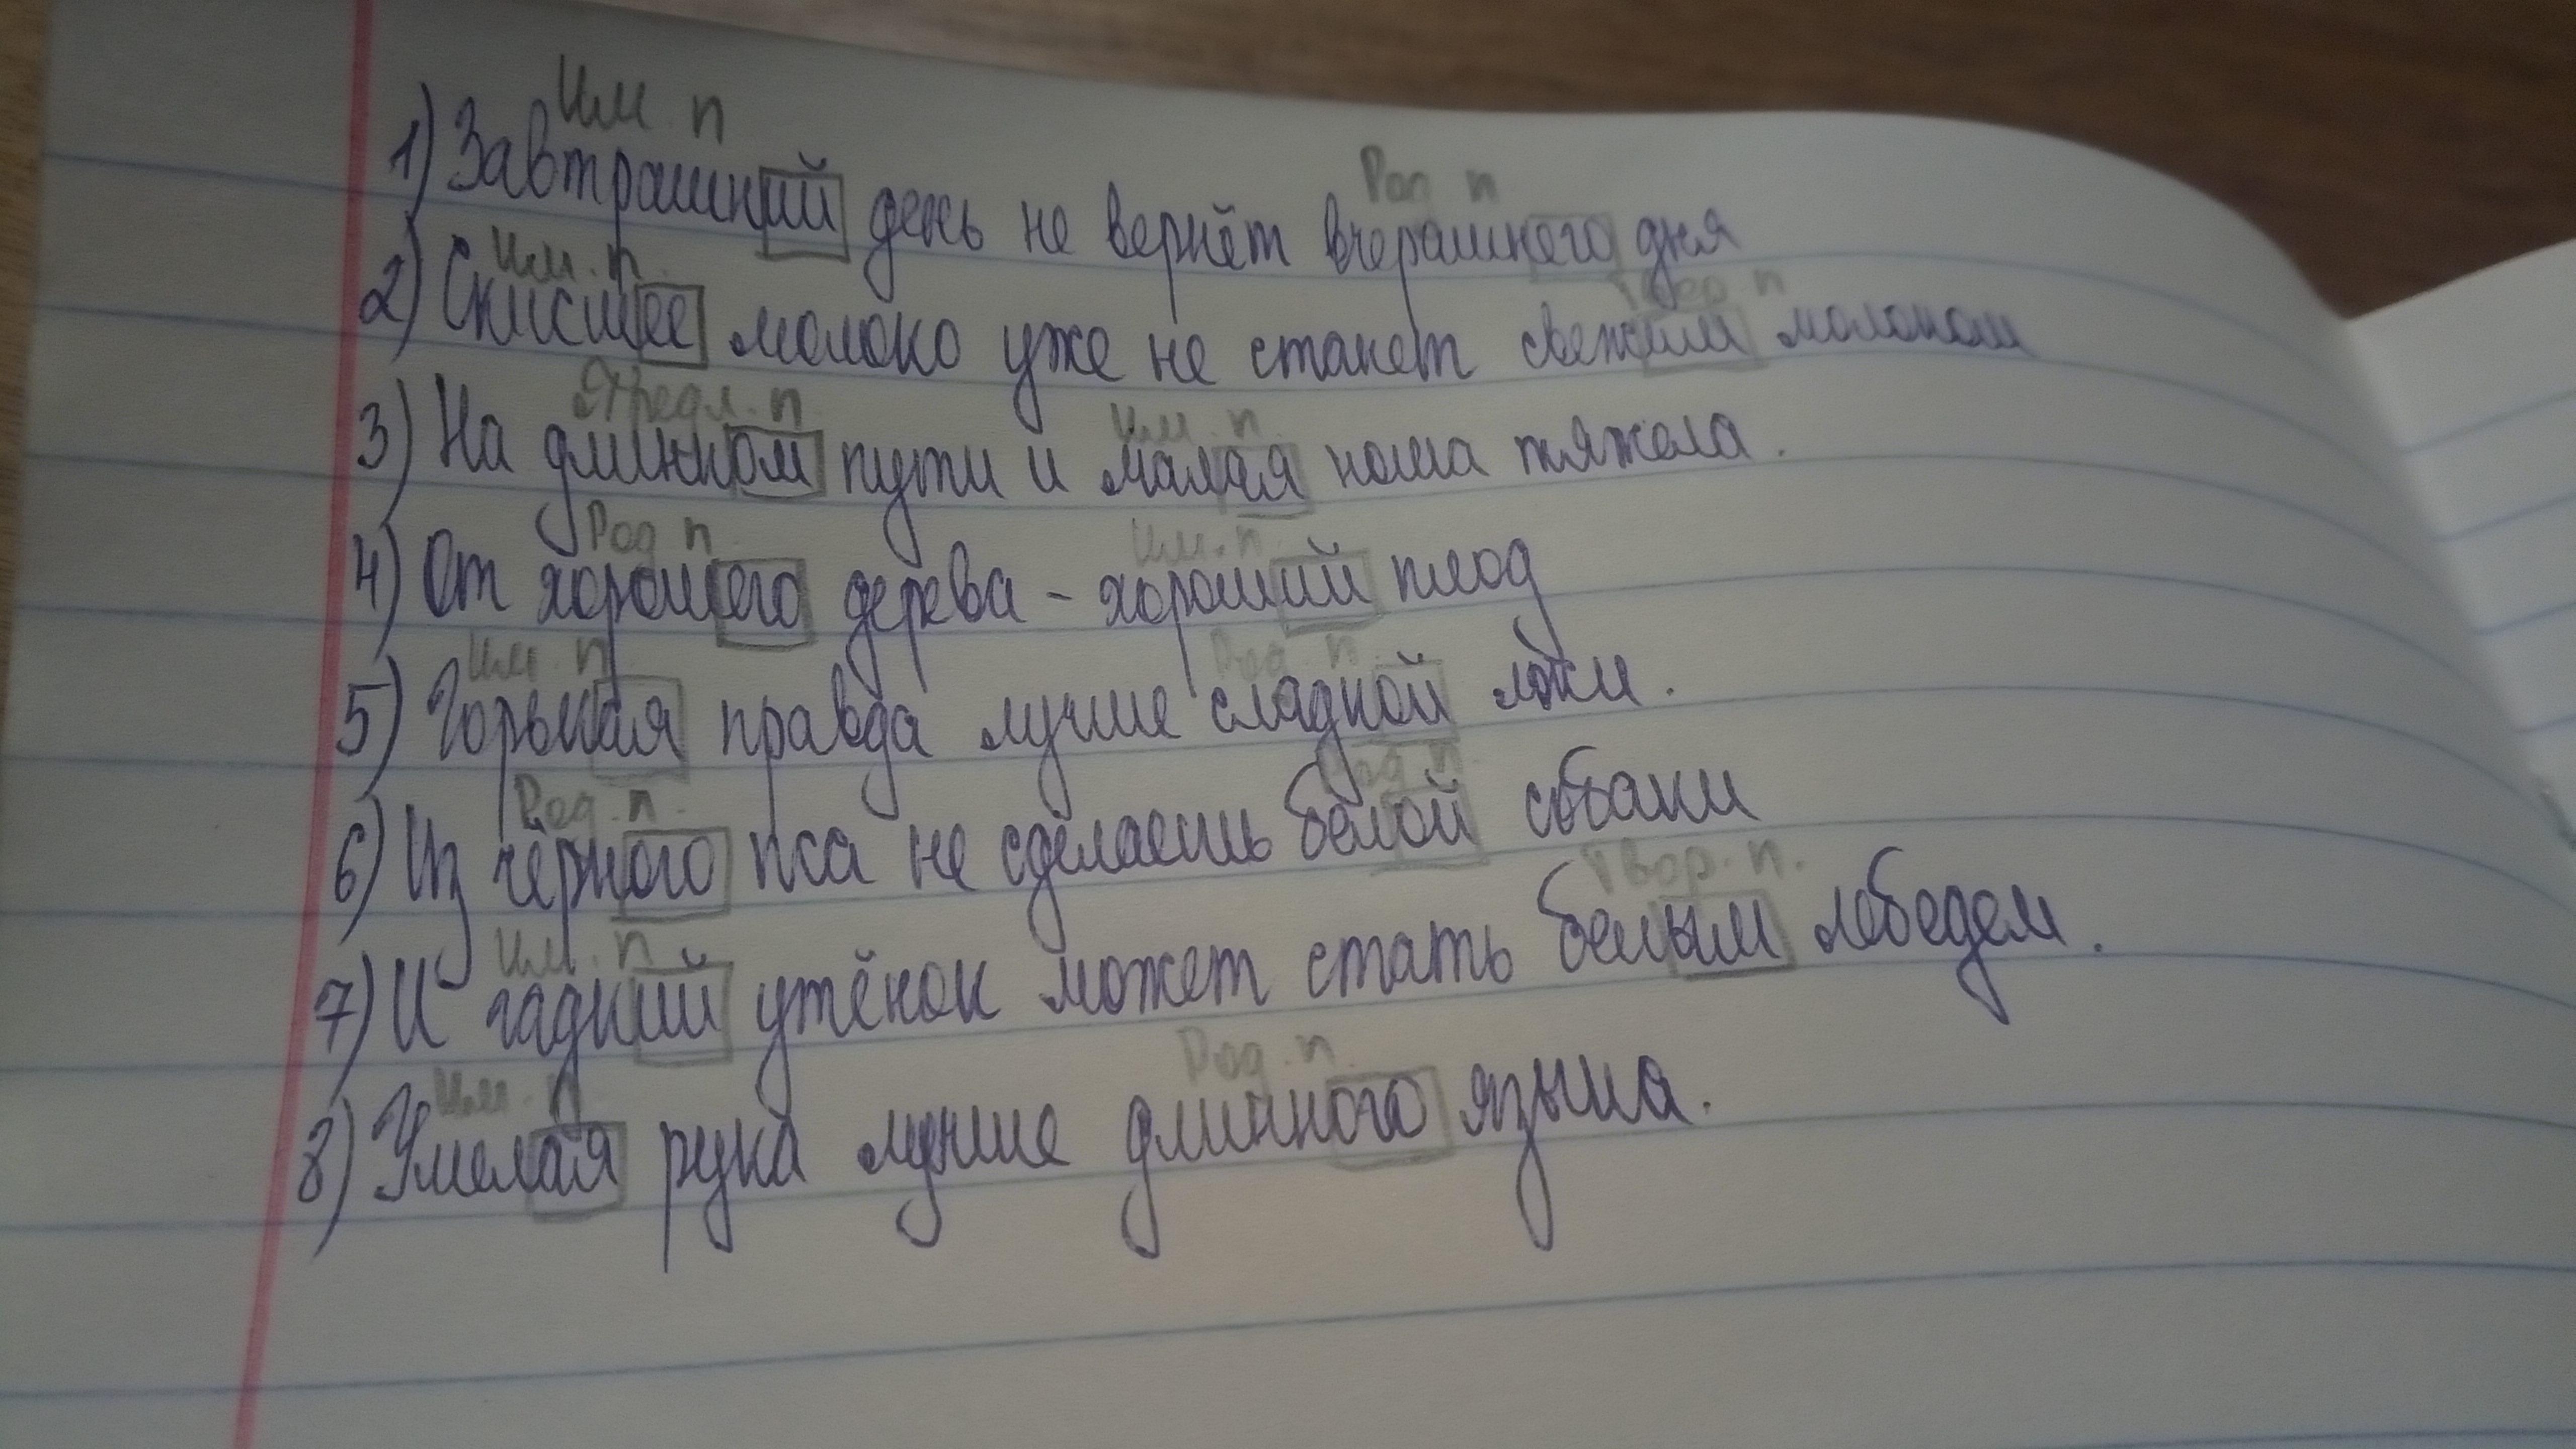 Им. п
1) Завтрашний день не вернёт вчерашнего дня
Род п
Им. п.
2) Скисшее молоко уже не станет свежим молоком
Твор п
Предл. п Им. п.
3) На длинном пути и малая ноша тяжела.
Род п. Им. п.
4) От хорошего дерева - хороший плод
Им. п. Род. п.
5) Горькая правда лучше сладкой лжи.
Род. п. Род п.
6) Из чёрного пса не сделаешь белой собаки
Им. п Твор. п.
7) И гадкий утёнок может стать белым лебедем.
Им. п Род. п.
8) Умелая рука лучше длинного языка.